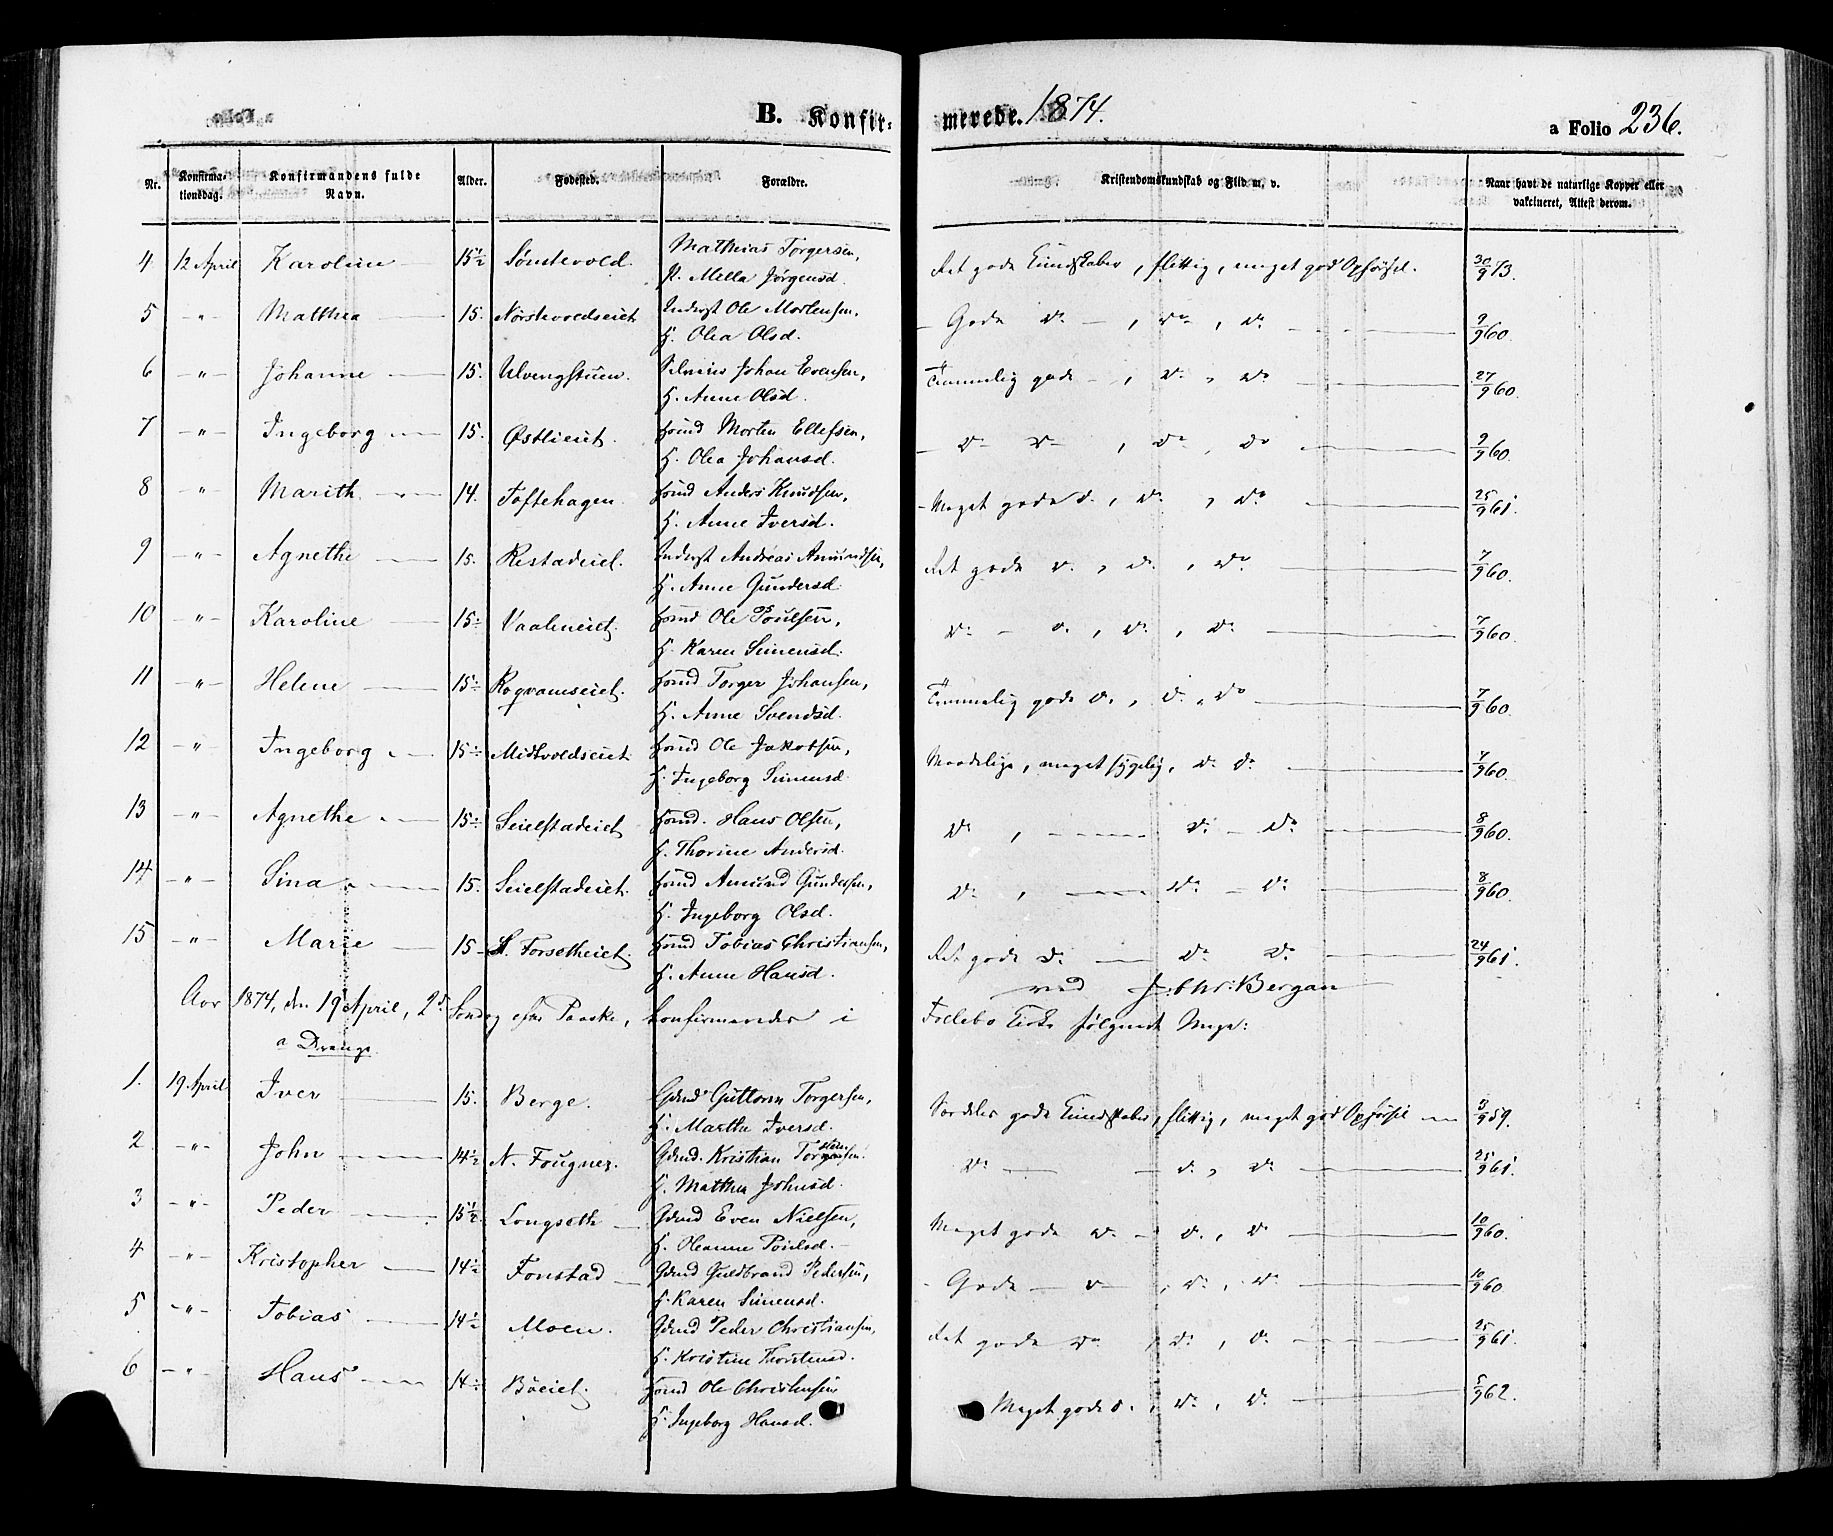 B. Konfirmerede. 1874.
a Folio 236.
Nr. Konfirmationsdag. Konfirmandens fulde Navn. Alder. Fødested. Forældre. Kristendomskundskab og Flid m. v. Naar havt de naturlige Kopper eller vakcineret, Attest derom.
4 12 April Karoline 15 1/2 Sønstevold. Mathias Torgersen, Ret gode Kundskaber, flittig, meget god Opførsel. 30/9 73.
Mella Jørgensd.
5 -"- Matthea 15. Nørstevoldseiet Inderst Ole Mortensen, Gode do, do, do 9/9 60.
H. Olea Olsd.
6 -"- Johanne 15. Ulvengstuen. Johan Evensen, Temmelig gode, do, do 27/9 60.
H. Anne Olsd.
7 -"- Ingeborg 15. Østlieiet. Hmd Morten Ellefsen, do do, do, do 9/9 60.
H. Olea Johansd.
8 -"- Marith 14. Toftehagen. Hmd Anders Knudsen, Meget gode d., do, do 25/9 61.
H. Anne Iversd.
9 -"- Agnethe 15. Restadeiet. Inderst Andreas Amundsen, Ret gode d., d., do 7/9 60.
H. Anne Gundersd.
10 -"- Karoline 15 1/2 Vaaleneiet. Hmd Ole Poulsen, do - d., do, do 7/9 60.
H. Karen Simensd.
11 -"- Helene 15 1/2 Roqvamseiet. Hmd Torger Johansen, Temmelig gode d., d., do 7/9 60.
H. Anne Svendsd.
12 -"- Ingeborg 15 1/2 Midtvoldseiet Hmd Ole Jakobsen, Maadelige, meget sygelig, do do 7/9 60.
H. Ingeborg Simensd.
13 -"- Agnethe 15 1/2 Seielstadeiet Hmd. Hans Olsen, do, do - do 8/9 60.
H. Thorine Andersd.
14 -"- Sina 15. Seielstadeiet. Hmd Amund Gundersen, do, do - do 8/9 60.
H. Ingeborg Olsd.
15 -"- Marie 15 Forsetheiet. Hmd Tobias Christiansen, Ret gode do do do 24/9 61.
H. Anne Hansd.
ved J. Chr. Bergan
Aar 1874, den 19 April, 2d Søndag efter Paaske, konfirmeredes i Follebo Kirke følgende Unge:
a Drenge.
1. 19. April Iver 15. Berge. Gdmd Guttorm Torgersen, Særdeles gode Kundskaber, flittig, meget god Opførsel 5/9 59.
H. Marthe Iversd.
2 -"- John 14 1/2 N. Fougner. Gdmd. Kristian Torgersen. do - d., do 25/9 61.
H. Matthea Johnsd.
3 -"- Peder 15 1/2 Longseth Gdmd Even Nielsen, Meget gode do - d., do 10/9 60.
H. Oleanne Poulsd.
4 -"- Kristopher 14 1/2 Fonstad Gdmd Guldbrand Pedersen, Gode - d, do, do 10/9 60
H. Karen Simensd.
5 -"- Tobias 14 1/2 Moen. Gdmd Peder Christiansen, Ret gode do, do, d. 25/9 61.
H. Kristine Thorstensd.
6 -"- Hans 14 1/2 Bøeiet. Hmd Ole Christensen Meget gode d., do, do. 5/9 62.
H. Ingeborg Hansd.